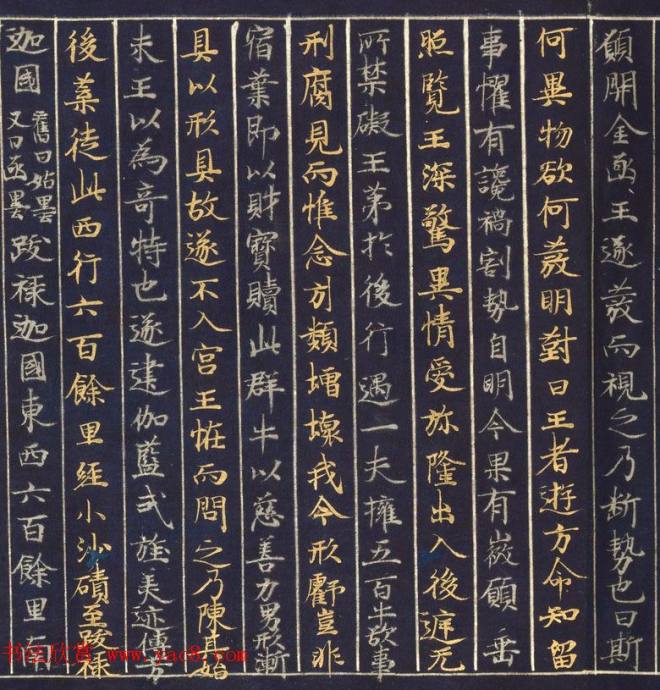 願開金函王遂發而視之乃斷勢也曰斯
何異物欲何發明對曰王者遊方命知留
事懼有讒禍割勢自明今果有徵願垂
照覽王深驚異情愛弥隆出入後庭无
所禁礙王弟於後行遇一夫擁五百牛欲事
刑腐見而惟念引類增懷我今形虧豈非
宿業即以財寶贖此群牛以慈善力男形漸
具以形具故遂不入宮王恠而問之乃陳其始
末王以為奇特也遂建伽藍式旌美迹傳芳
後葉從此西行六百餘里經小沙磧至跋禄
迦國 舊曰姑墨又曰亟墨 跋禄迦國東西六百餘里南
书法欣赏 www.yac8.com